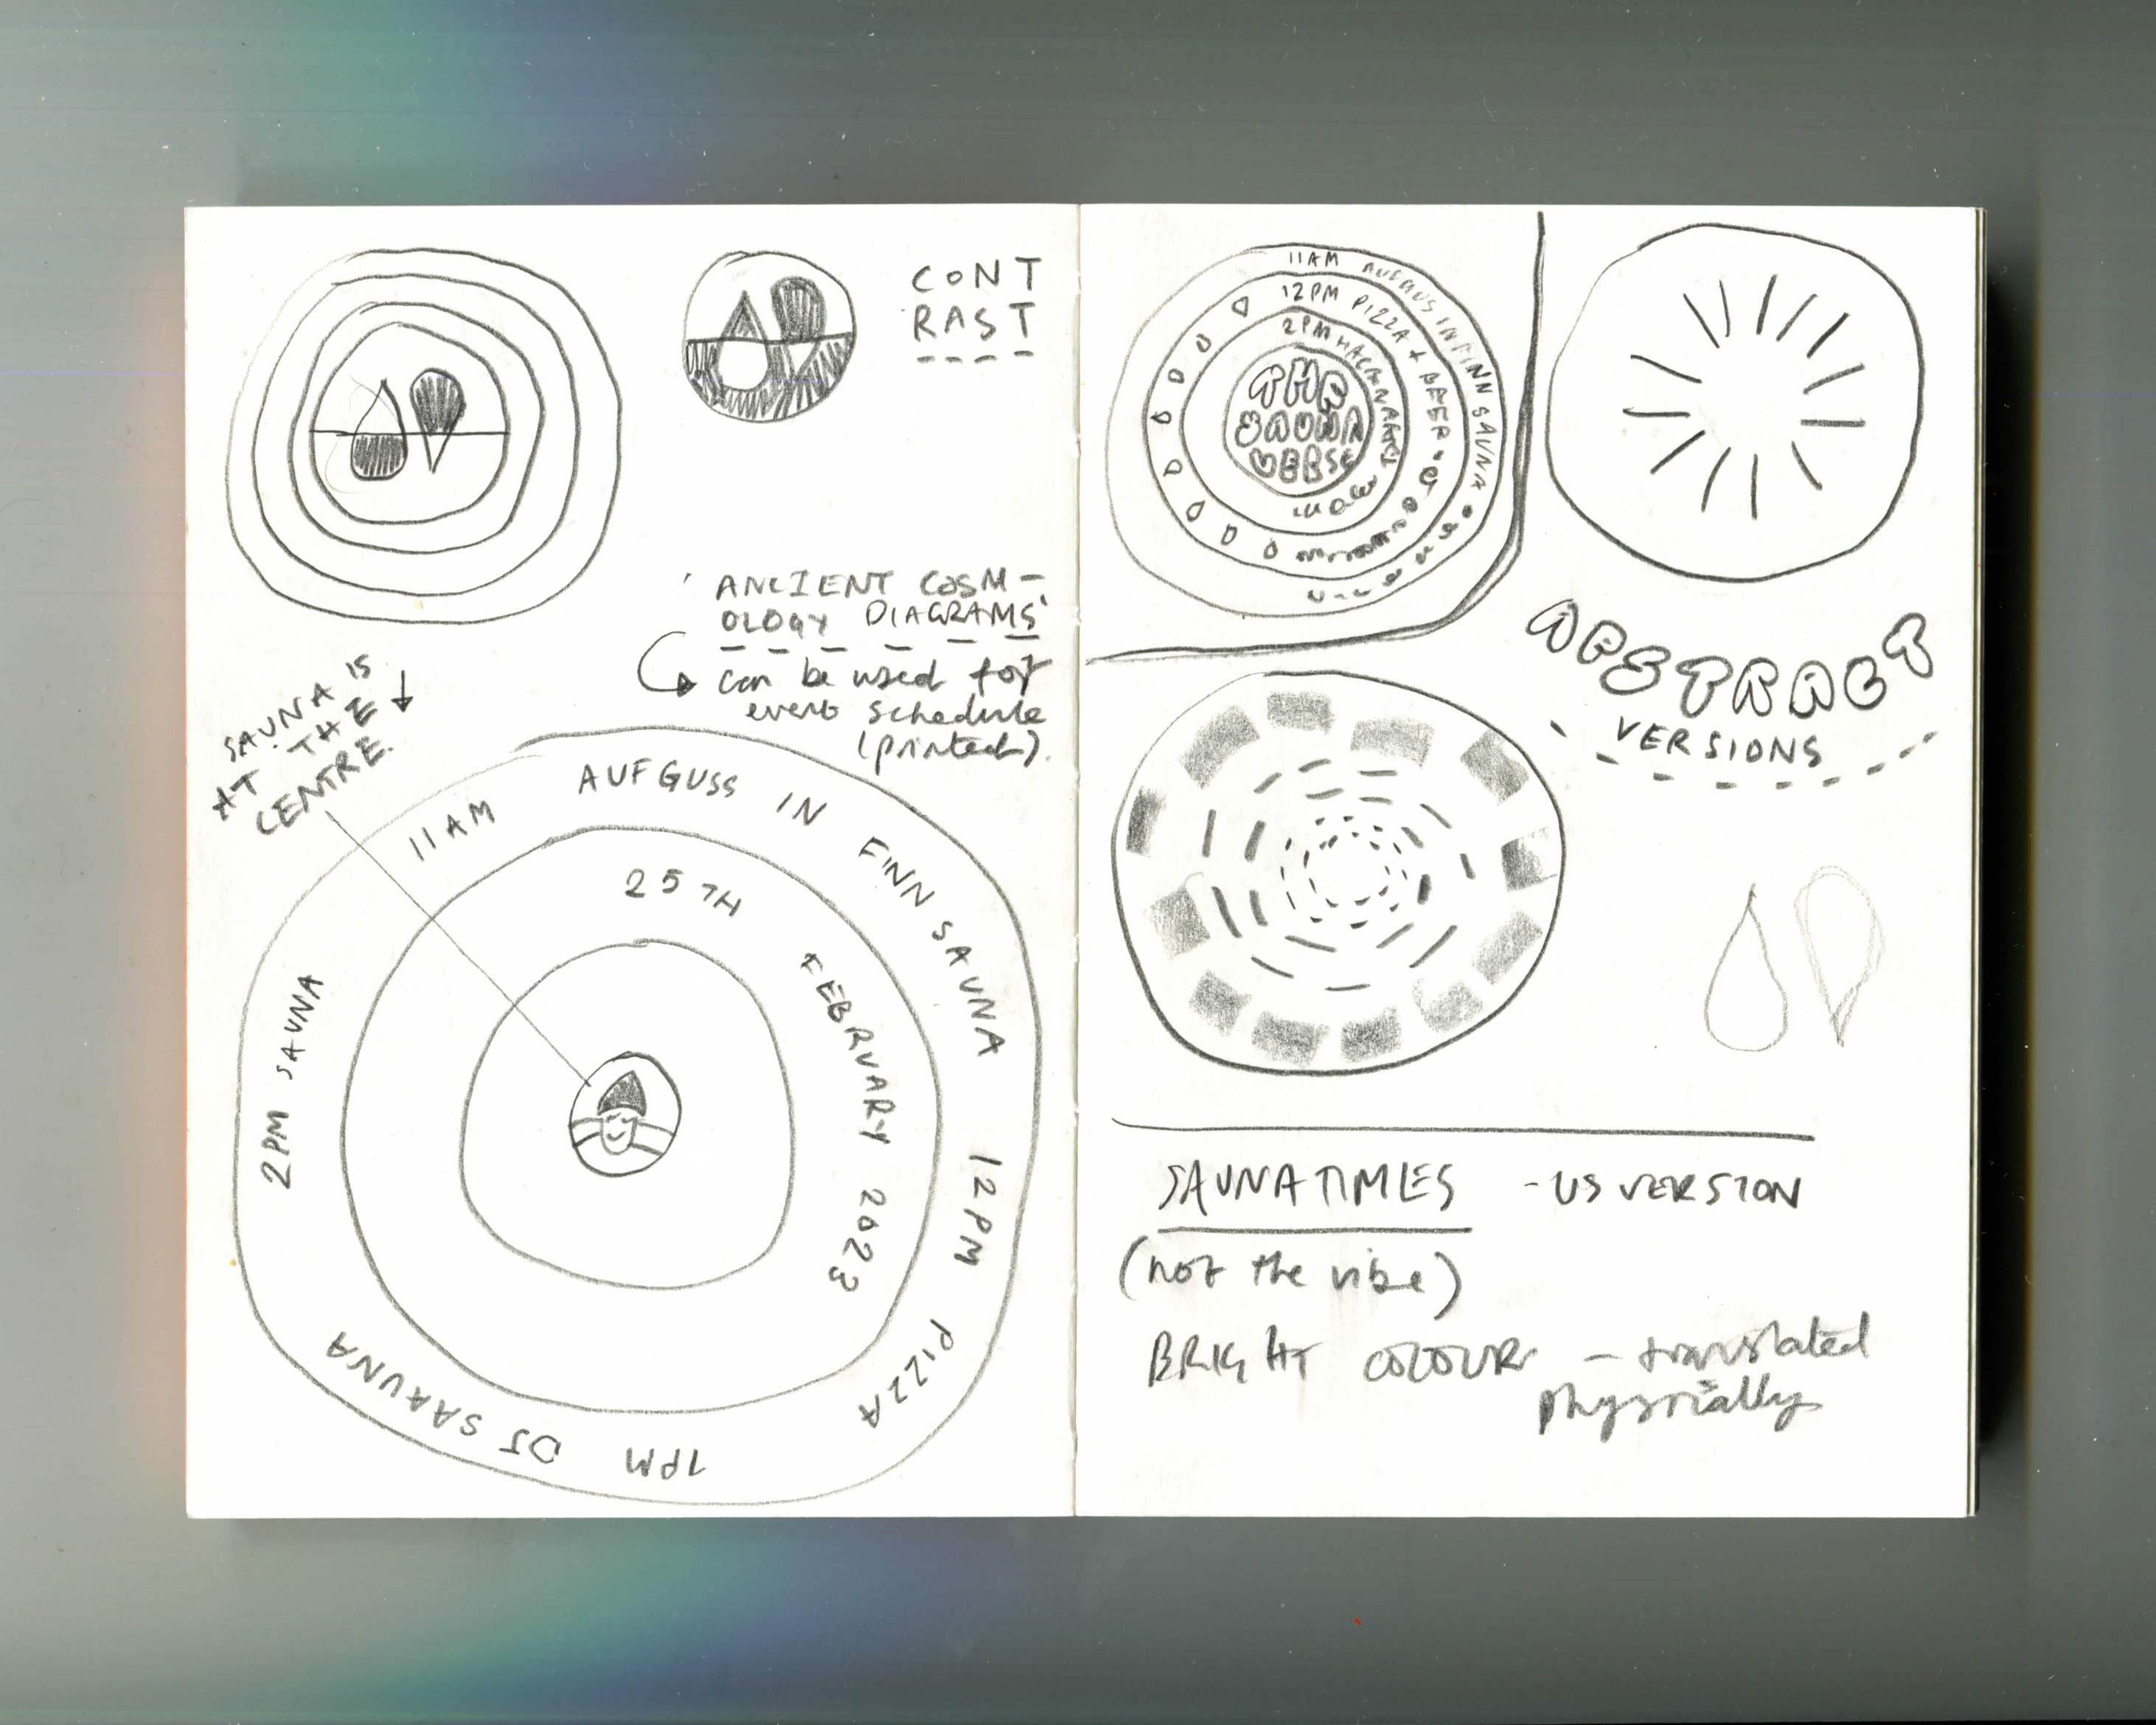 CONT
RAST
'ANCIENT COSM-
OLOGY DIAGRAMS'
can be used for
event schedule
(printed).
SAUNA IS
AT THE
CENTRE.
11AM AUFGUSS IN FINN SAUNA 12PM PIZZA 1PM DJ SAAUNA 2PM SAUNA
25TH FEBRUARY 2023
11AM AUFGUSS IN FINN SAUNA
12PM PIZZA + BEER
2PM
THE
SAUNA
VERSE
ABSTRACT
VERSIONS
SAUNATIMES - US VERSION
(not the vibe)
BRIGHT COLOUR - translated
physically